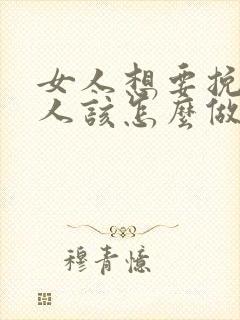 女人想要挽
人该怎麼做
穆青憶